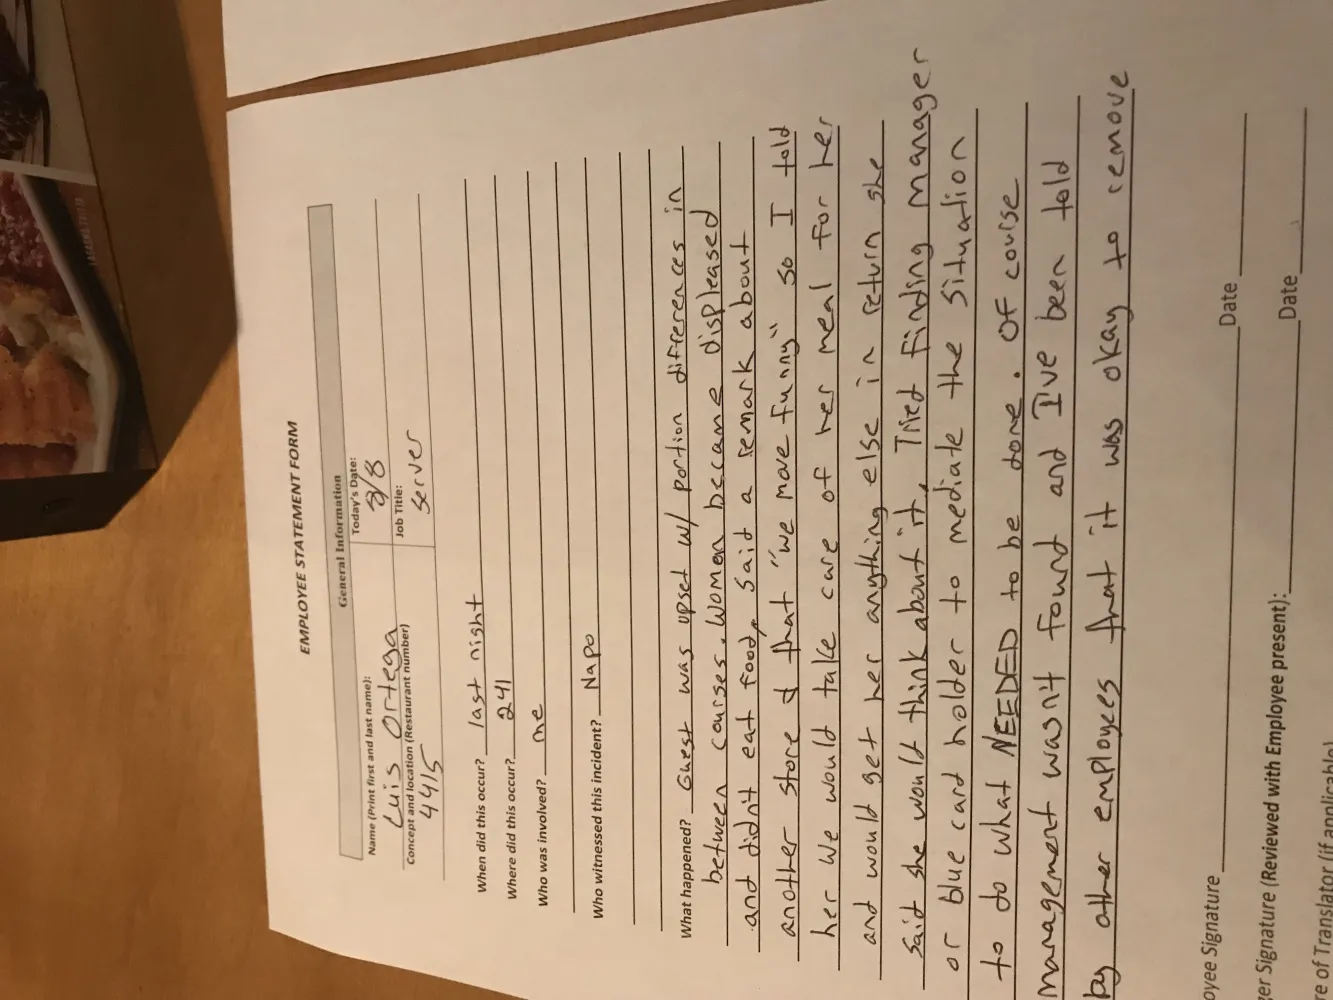 EMPLOYEE STATEMENT FORM
General Information
Name (Print first and last name):
Luis Ortega
Today's Date:
2/8
Concept and location (Restaurant number)
4415
Job Title:
Server
When did this occur? last night
Where did this occur? 241
Who was involved? me
Who witnessed this incident? Napo
What happened? Guest was upset w/ portion differences in
between courses. Women became displeased
and didn't eat food, said a remark about
another store & that "we move funny" so I told
her we would take care of her meal for her
and would get her anything else in return she
said she would think about it. Tried finding manager
or blue card holder to mediate the situation
to do what NEEDED to be done. Of course
management wasn't found and I've been told
by other employees that it was okay to remove
oyee Signature Date
er Signature (Reviewed with Employee present): Date
re of Translator (if applicable)